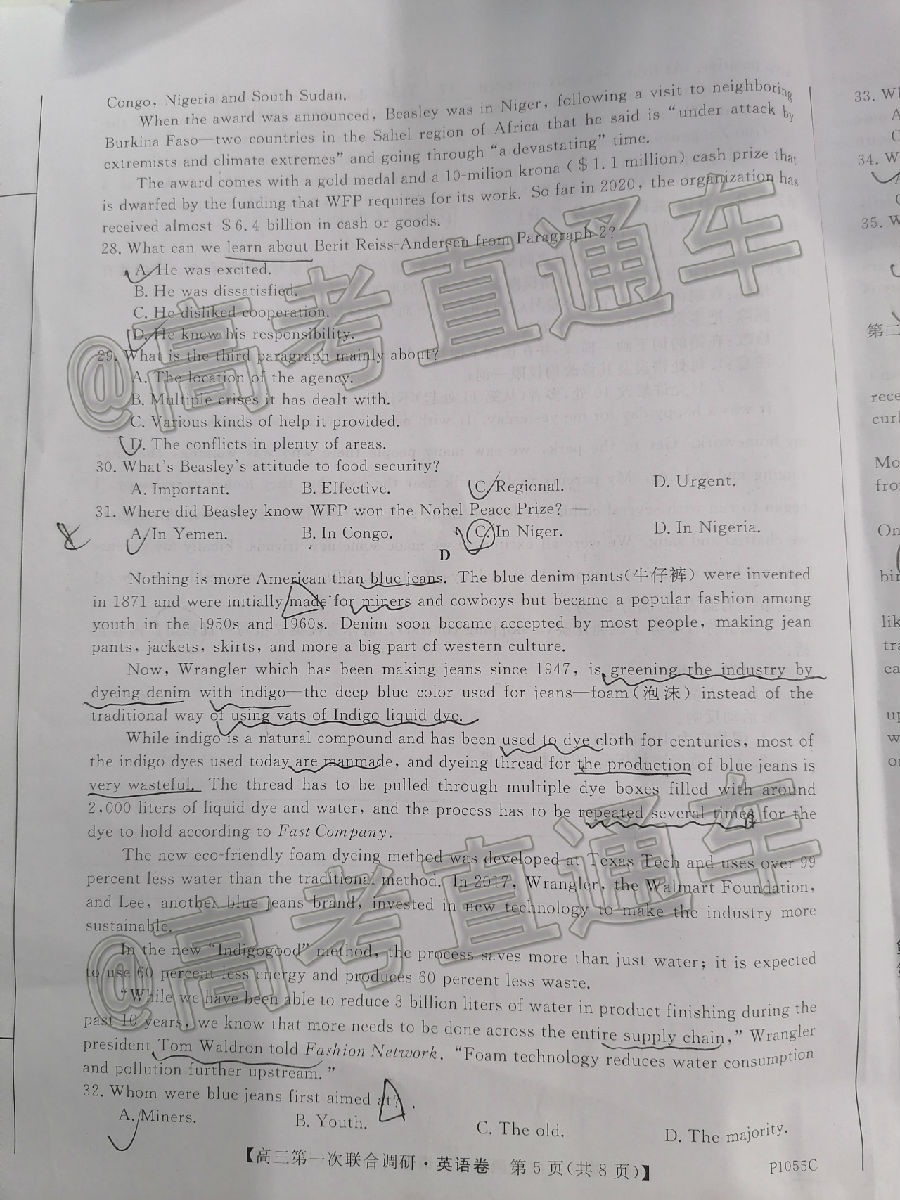 Congo, Nigeria and South Sudan.
When the award was announced, Beasley was in Niger, following a visit to neighboring
Burkina Faso—two countries in the Sahel region of Africa that he said is "under attack by
extremists and climate extremes" and going through "a devastating" time.
The award comes with a gold medal and a 10-milion krona ($1.1 million) cash prize that
is dwarfed by the funding that WFP requires for its work. So far in 2020, the organization has
received almost $6.4 billion in cash or goods.
28. What can we learn about Berit Reiss-Andersen from Paragraph 2?
A. He was excited.
B. He was dissatisfied.
C. He disliked cooperation.
D. He knew his responsibility.
29. What is the third paragraph mainly about?
A. The location of the agency.
B. Multiple crises it has dealt with.
C. Various kinds of help it provided.
D. The conflicts in plenty of areas.
30. What's Beasley's attitude to food security?
A. Important. B. Effective. C. Regional. D. Urgent.
31. Where did Beasley know WFP won the Nobel Peace Prize?
A. In Yemen. B. In Congo. C. In Niger. D. In Nigeria.
D
Nothing is more American than blue jeans. The blue denim pants(牛仔裤) were invented
in 1871 and were initially made for miners and cowboys but became a popular fashion among
youth in the 1950s and 1960s. Denim soon became accepted by most people, making jean
pants, jackets, skirts, and more a big part of western culture.
Now, Wrangler which has been making jeans since 1947, is greening the industry by
dyeing denim with indigo—the deep blue color used for jeans—foam(泡沫) instead of the
traditional way of using vats of Indigo liquid dye.
While indigo is a natural compound and has been used to dye cloth for centuries, most of
the indigo dyes used today are manmade, and dyeing thread for the production of blue jeans is
very wasteful. The thread has to be pulled through multiple dye boxes filled with around
2,000 liters of liquid dye and water, and the process has to be repeated several times for the
dye to hold according to Fast Company.
The new eco-friendly foam dyeing method was developed at Texas Tech and uses over 99
percent less water than the traditional method. In 2017, Wrangler, the Walmart Foundation,
and Lee, another blue jeans brand, invested in new technology to make the industry more
sustainable.
In the new "Indigogood" method, the process saves more than just water; it is expected
to use 60 percent less energy and produces 60 percent less waste.
"While we have been able to reduce 3 billion liters of water in product finishing during the
past 10 years, we know that more needs to be done across the entire supply chain," Wrangler
president Tom Waldron told Fashion Network. "Foam technology reduces water consumption
and pollution further upstream."
32. Whom were blue jeans first aimed at?
A. Miners. B. Youth. C. The old. D. The majority.
【高三第一次联合调研·英语卷 第5页(共8页)】 P1055C
@高考直通车
@高考直通车
33. W
A
C
34. W
35. W
第二
rece
curl
Mo
fro
On
bir
lik
tra
ca
up
w
o